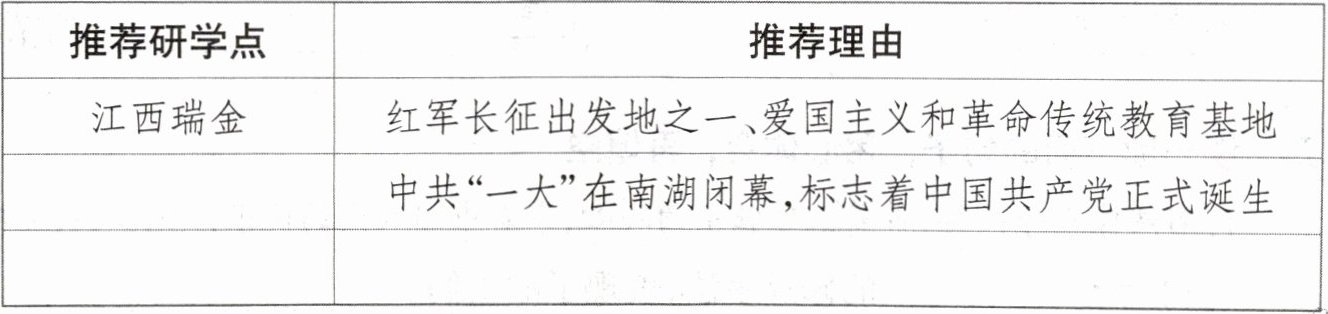 推荐研学点 推荐理由
江西瑞金 红军长征出发地之一、爱国主义和革命传统教育基地
中共“一大”在南湖闭幕,标志着中国共产党正式诞生